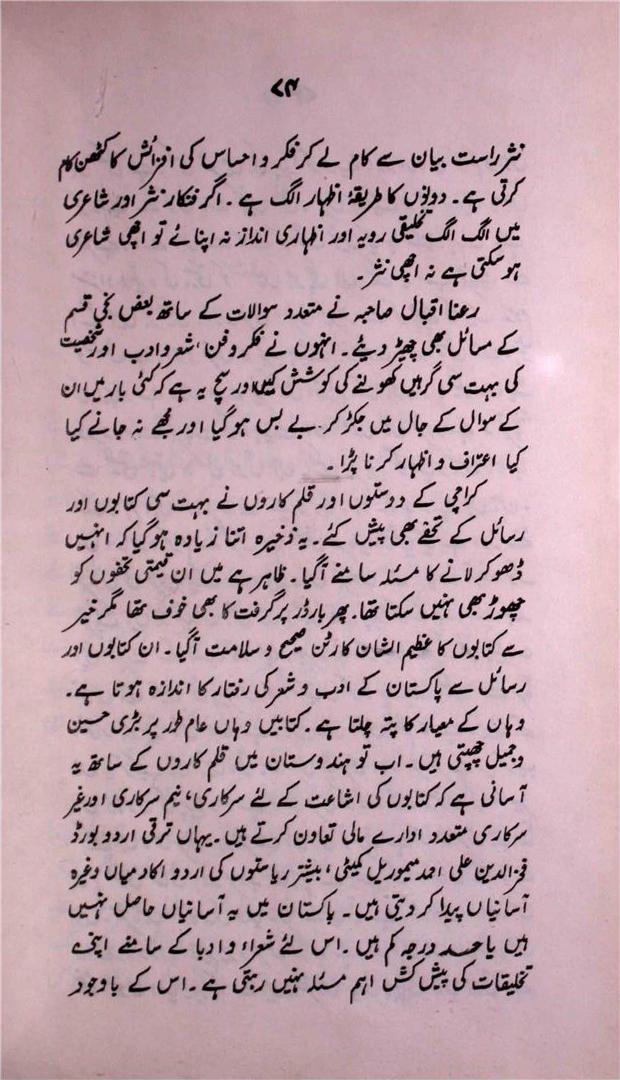 ۷۴
نثر راست بیان سے کام لے کر فکر و احساس کی افزائش کا کٹھن کام
کرتی ہے۔ دونوں کا طریقۂ اظہار الگ ہے۔ اگر فنکار نثر اور شاعری
میں الگ الگ تخلیقی رویہ اور اظہاری انداز نہ اپنائے تو اچھی شاعری
ہو سکتی ہے نہ اچھی نثر۔
رعنا اقبال صاحبہ نے متعدد سوالات کے ساتھ بعض نجی قسم
کے مسائل بھی چھیڑ دیئے۔ انہوں نے فکر و فن، شعر و ادب اور شخصیت
کی بہت سی گرہیں کھولنے کی کوشش کیں اور سچ یہ ہے کہ کئی بار میں ان
کے سوال کے جال میں جکڑ کر بے بس ہو گیا اور مجھے نہ جانے کیا
کیا اعتراف و اظہار کرنا پڑا۔
کراچی کے دوستوں اور قلم کاروں نے بہت سی کتابوں اور
رسائل کے تحفے بھی پیش کئے۔ یہ ذخیرہ اتنا زیادہ ہو گیا کہ انہیں
ڈھو کر لانے کا مسئلہ سامنے آگیا۔ ظاہر ہے میں ان قیمتی تحفوں کو
چھوڑ بھی نہیں سکتا تھا۔ پھر بارڈر پر گرفت کا بھی خوف تھا مگر خیر
سے کتابوں کا عظیم الشان کارٹن صحیح و سلامت آگیا۔ ان کتابوں اور
رسائل سے پاکستان کے ادب و شعر کی رفتار کا اندازہ ہوتا ہے۔
وہاں کے معیار کا پتہ چلتا ہے۔ کتابیں وہاں عام طور پر بڑی حسین
و جمیل چھپتی ہیں۔ اب تو ہندوستان میں قلم کاروں کے ساتھ یہ
آسانی ہے کہ کتابوں کی اشاعت کے لئے سرکاری، نیم سرکاری اور غیر
سرکاری متعدد ادارے مالی تعاون کرتے ہیں۔ یہاں ترقی اردو بورڈ
فخرالدین علی احمد میموریل کمیٹی، بیشتر ریاستوں کی اردو اکادمیاں وغیرہ
آسانیاں پیدا کر دیتی ہیں۔ پاکستان میں یہ آسانیاں حاصل نہیں
ہیں یا حد درجہ کم ہیں۔ اس لئے شعراء و ادبا کے سامنے اپنی
تخلیقات کی پیش کش اہم مسئلہ نہیں رہتی ہے۔ اس کے باوجود